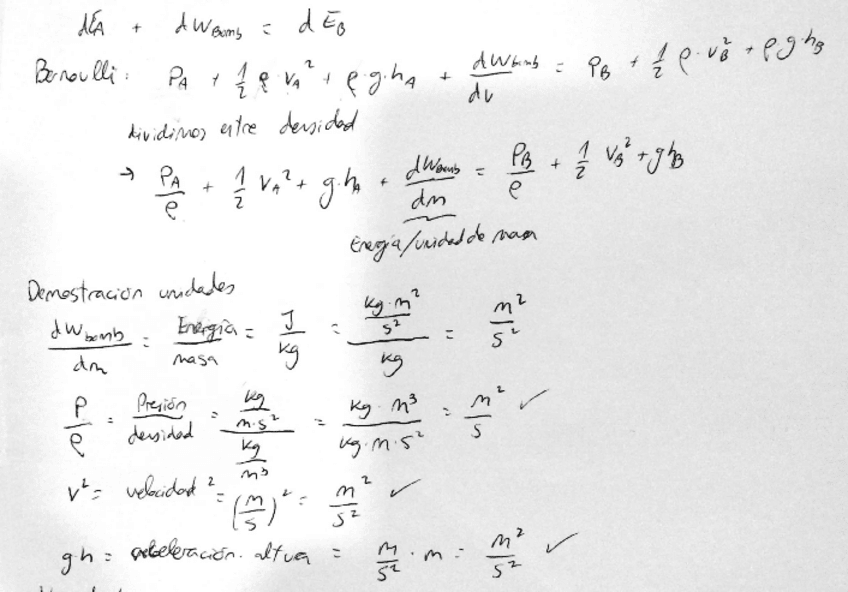 dE_A + dW_Bomb = dE_B
Bernoulli: P_A + 1/2 ρ v_A² + ρ·g·h_A + dW_bomb/dv = P_B + 1/2 ρ·v_B² + ρgh_B
dividimos entre densidad
→ P_A/ρ + 1/2 v_A² + g·h_A + dW_Bomb/dm = P_B/ρ + 1/2 v_B² + gh_B
Energía/unidad de masa
Demostración unidades
dW_bomb/dm = Energía/masa = J/kg = (kg·m²/s²)/kg = m²/s²
P/ρ = Presión/densidad = (kg/m·s²)/(kg/m³) = kg·m³/kg·m·s² = m²/s ✓
v² = velocidad² = (m/s)² = m²/s² ✓
g·h = aceleración·altura = m/s² · m = m²/s² ✓